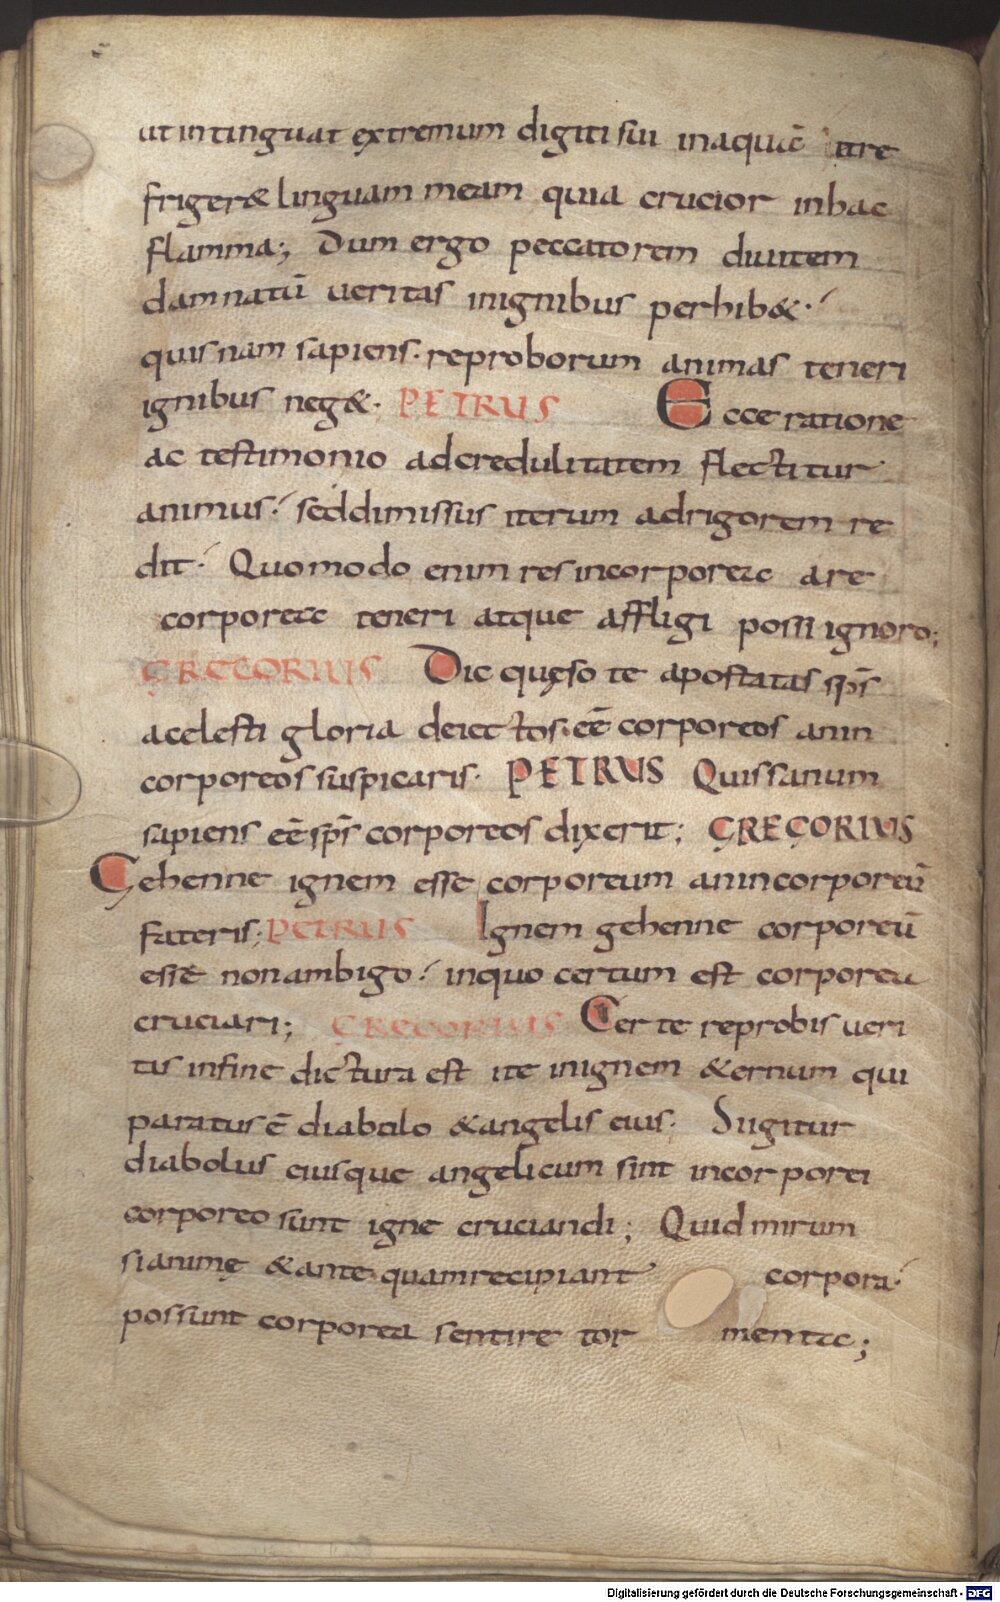 ut intinguat extremum digiti sui in aquā ut re
friger& linguam meam quia crucior in hac
flamma; Dum ergo peccatorem divitem
damnatū veritas in ignibus perhib&.
quisnam sapiens. reproborum animas teneri
ignibus neg&. PETRUS Ecce ratione
ac testimonio ad credulitatem flectitur
animus. sed dimissus iterum ad rigorem re
dit. Quomodo enim res incorporea a re
corporea teneri atque affligi possi ignoro;
GREGORIUS Dic quęso te apostatas sp̄s
a celesti gloria deiectos. eē corporeos an in
corporeos suspicaris. PETRUS Quis sanum
sapiens eē sp̄s corporeos dixerit; GREGORIUS
Gehenne ignem esse corporeum an incorporeū
fateris; PETRUS Ignem gehenne corporeū
esse non ambigo. in quo certum est corpora
cruciari; GREGORIUS Certe reprobis veri
tas in fine dictura est ite in ignem &ernum qui
paratus ē diabolo & angelis eius. Si igitur
diabolus eiusque angeli cum sint incorporei
corporeo sunt igne cruciandi; Quid mirum
si animę & antequam recipiant corpora.
possunt corporea sentire tormenta;
Digitalisierung gefördert durch die Deutsche Forschungsgemeinschaft - DFG